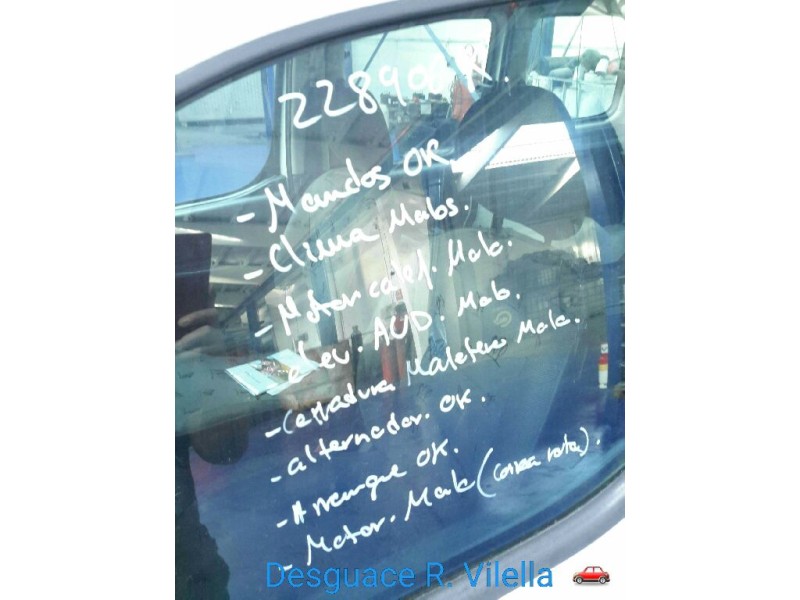 228906R.
- Mandos OK.
- Clima Malos.
- Motor calef. Malo.
elev. AUD. Malo.
- Cerradura Maletero Malo.
- alternador. OK.
- Arranque OK.
- Motor. Malo (correa rota).
Desguace R. Vilella